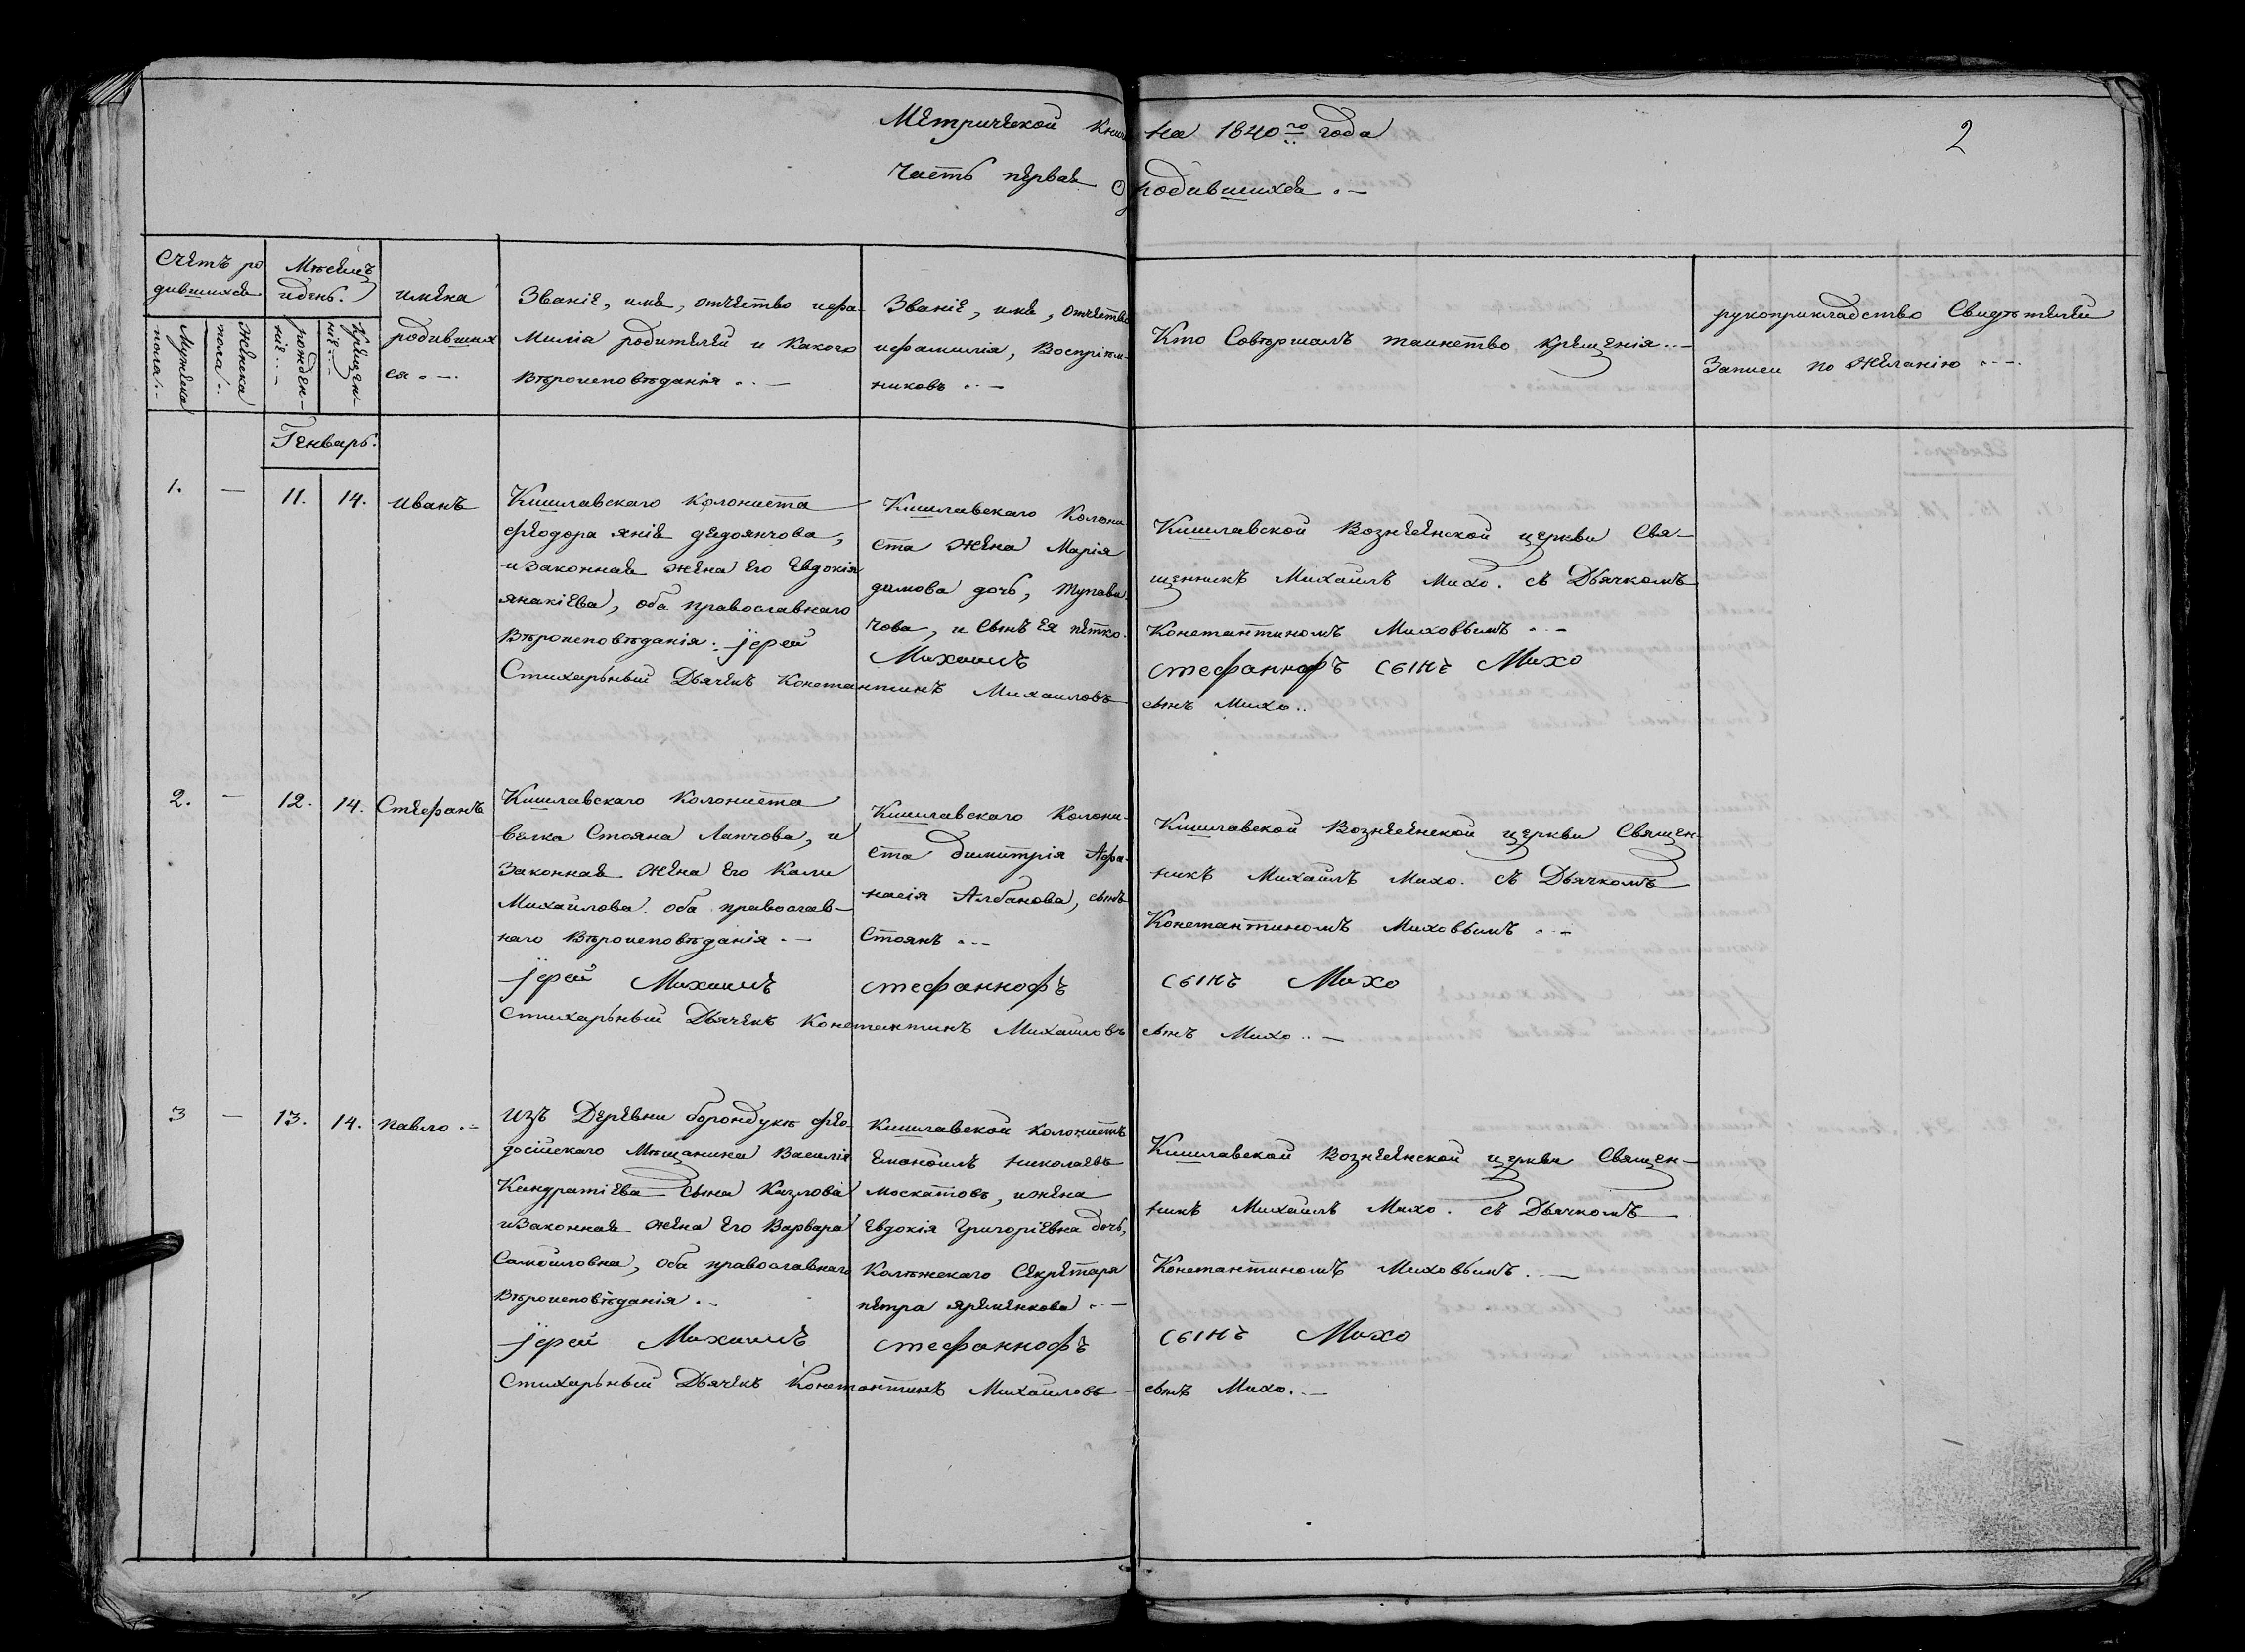 Метрической Книги на 1840го года
2
Часть первая О родившихся
Счетъ ро
дившихся
Мужеска
пола
Женска
пола
Месецъ
и день.
рожден-
ніе
Крещен-
ніе
имена
родивших
ся
Званіе, имя, отчество и фа-
милія родителей и Какого
вѣроисповѣданія
Званіе, имя, отчество
и фамилія, Воспріем-
никовъ
Кто Совѣршалъ таинство крещенія
рукоприкладство Свидѣтелей
Записи по Желанію
Генварь.
1.
—
11.
14.
иванъ
Кишлавскаго Колониста
феодора янія дедоянчова,
и законная жена его Евдокія
янакіева, оба православнаго
вѣроисповѣданія. іерей
Стихарьный Дьячекъ Константинъ Михаиловъ
Кишлавскаго Колони
ста жена Марія
димова дочь,
чова, и сынъ ея петко.
Михаилъ
Кишлавской Вознесенской церкви Свя-
щенникъ Михаилъ Михо. съ Дьячкомъ
Константиномъ Миховымъ
стефанноφъ сынъ Михо
сынъ Михо..
2.
—
12.
14.
Стефанъ
Кишлавскаго Колониста
велка Стояна Лапчова, и
Законная Жена его Кали
Михаилова. оба православ-
наго вѣроисповѣданія
іерей Михаилъ
Стихарьный Дьячекъ Константинъ Михаиловъ
Кишлавскаго Колони-
ста димитрія Афа-
насія Албанова, сынъ
Стоянъ
стефанноφъ
Кишлавской Вознесенской церкви Священ-
никъ Михаилъ Михо. съ Дьячкомъ
Константиномъ Миховымъ
сынъ Михо
сынъ Михо
3
—
13.
14.
павло
изъ Деревни борондукъ фео-
досійскаго Мещанина Василія
Кандратіева сына Казлова
и законная жена его Варвара
Самоиловна, оба православнаго
вѣроисповѣданія
іерей Михаилъ
Стихарьный Дьячекъ Константинъ Михаиловъ
Кишлавской колонистъ
Емануилъ николаевъ
москатовъ, и жена
Евдокія григоріевна дочь,
Колежскаго Секретаря
петра яременкова
стефанноφъ
Кишлавской Вознесенской церкви Священ-
никъ Михаилъ Михо. съ Дьячкомъ
Константиномъ Миховымъ
сынъ Михо
сынъ Михо.